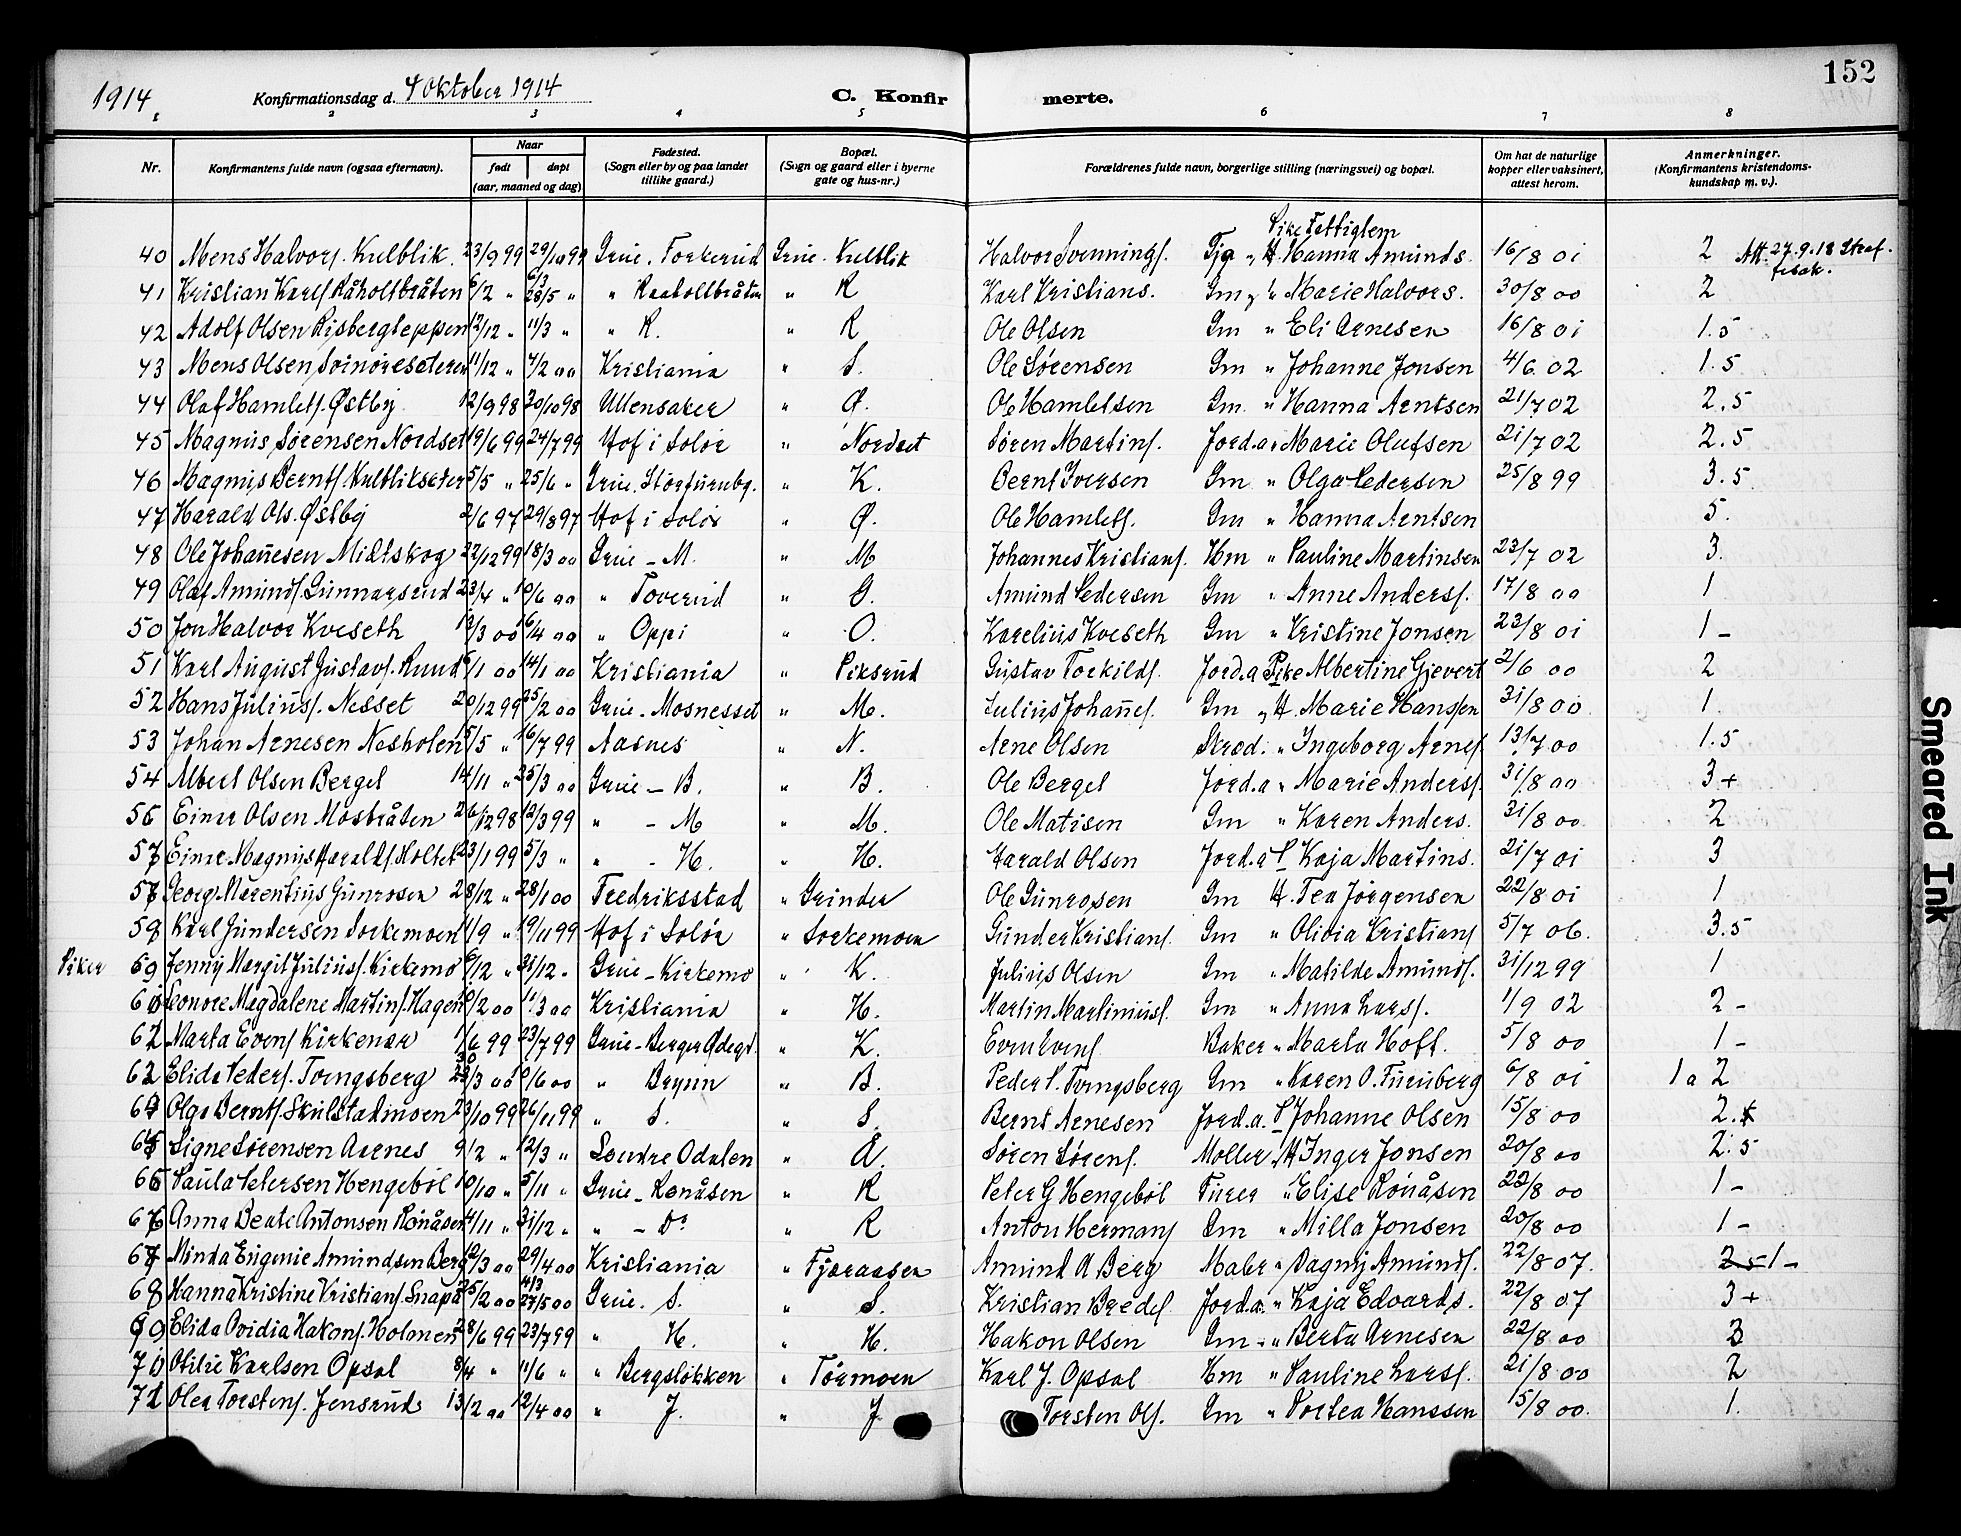 1914.
Konfirmationsdag d. 4 Oktober 1914
C. Konfirmerte.
152
1 2 3 4 5 6 7 8
Nr. Konfirmantens fulde navn (ogsaa efternavn). Naar født døpt (aar, maaned og dag) Fødested. (Sogn eller by og paa landet tillike gaard.) Bopæl. (Sogn og gaard eller i byerne gate og hus-nr.) Forældrenes fulde navn, borgerlige stilling (næringsvei) og bopæl. Om hat de naturlige kopper eller vaksinert, attest herom. Anmerkninger. (Konfirmantens kristendomskundskap m. v.).
Pike Fattiglem
40 Mens Halvors. Kulblik. 23/9 99 29/10 99 Grue. Torkerud Grue - Kulblik Halvor Svennings. Tjg " H. Hanna Amunds. 16/8 01 2 Att. 27.9.18 Straffesak.
41 Kristian Karls Råholtbråten 6/2 " 28/5 " " Raaholtbråten " R Karl Kristians. Gm " Marie Halvors. 30/8 00 2
42 Adolf Olsen Risbergleppen 12/12 " 11/3 " " R. " R Ole Olsen Gm " Eli Arnesen 16/8 01 1.5
43 Mens Olsen Svinøreseteren 11/12 " 4/2 00 Kristiania " S. Ole Sørensen Gm " Johanne Jonsen 4/6 02 1.5
44 Olaf Hamlets. Østby 12/9 98 20/10 98 Ullensaker " Ø. Ole Hamletsen Gm. " Hanna Arntsen 21/7 02 2.5
45 Magnus Sørensen Nordset 19/6 99 24/7 99 Hof i Solør " Nordset Søren Martins. Jord.a " Marie Olufsen 21/7 02 2.5
46 Magnus Bernts. Kulblikseter 5/5 " 25/6 " Grue. Storfurubg. " K. Bernt Iversen Gm " Olga Pedersen 25/8 99 3.5
47 Harald Ols. Østby 2/6 97 29/8 97 Hof i Solør " Ø. Ole Hamlets. Gm " Hanna Arntsen 5.
48 Ole Johannesen Midtskog 22/12 99 18/3 00 Grue - M. " M Johannes Kristians. Hm " Pauline Martinsen 23/7 02 3.
49 Olaf Amunds. Gunnarsrud 23/4 " 10/6 00 " Toverud " G. Amund Pedersen Gm " Anne Anders. 17/8 00 1
50 Jon Halvor Kveseth 13/3 00 16/4 00 " Oppi " O. Karelius Kveseth Gm " Kristine Jonsen 23/8 01 1 -
51 Karl August Gustavs. Ruud 5/1 00 14/1 00 Kristiania " Piksrud Gustav Torkilds. Jord.a Pike Albertine Gjevert 2/6 00 2
52 Hans Julius. Nesset 20/12 99 25/2 00 Grue - Mosnesset " M. Julius Johannes. Gm " H. Marie Hanssen 31/8 00 1.
53 Johan Arnesen Nesholen 15/5 " 16/7 99 Aasnes " N. Arne Olsen Skræd. " Ingeborg Arnes. 13/7 00 1.5
54 Albert Olsen Berget 14/11 " 25/3 00 Grue - B. " B. Ole Berget Jord.a " Marie Anders. 31/8 00 3+
55 Einar Olsen Mosbråten 26/12 98 12/3 99 " - M " M. Ole Matisen Gm " Karen Anders. 31/8 00 2
57 Einar Magnus Haralds Moltet 23/1 99 5/3 " " - H. " H. Harald Olsen Jord.a P Kaja Martins. 21/7 01 3
57 Georg Marentius Gunrosen 28/12 " 28/1 00 Fredriksstad " Grinder Ole Gunrosen Gm H. Tea Jørgensen 22/8 01 1
59 Karl Gundersen Sorkemoen 11/9 " 19/11 99 Hof i Solør " Sorkemoen Gunder Kristians. Gm " Olivia Kristians 5/7 06. 3.5
Piker
59 Jenny Margit Julius. Kirkemo 6/12 " 31/12 " Grue - Kirkemo " K. Julius Olsen Gm " Matilde Amunds. 31/12 99 1
60 Leonore Magdalene Martins. Hagen 10/2 00 11/3 00 Kristiania " H. Martin Martinius. Gm " Anna Lars. 1/9 02 2 -
62 Marta Evens Kirkenær 1/6 99 23/7 99 Grue - Berger Ødegd. " K. Even Evens. Baker " Marta Hoff. 5/8 00 1 -
62 Elida Peders. Tvingsberg 23/3 00 10/6 00 " Brynn " B. Peder P. Tvingsberg Gm " Karen O. Furuberg 6/8 01 1 a 2
64 Olga Bernts. Skulstadmoen 23/10 99 26/11 99 " S. " S. Bernt Arnesen Jord.a. P Johanne Olsen 15/8 00 2.
65 Signe Sørensen Aarnes 9/2 " 12/3 " Søndre Odalen " Å. Søren Sørens. Møller H Inger Jonsen 20/8 00 2.5
66 Paula Petersen Hengebøl 10/10 " 5/11 " Grue - Rønåsen " R Peter G Hengebøl Furer " Elise Rønåsen 22/8 00 1 -
67 Anna Beate Antonsen Rønåsen 4/11 " 31/12 " " - Do " R Anton Hermans Gm " Milla Jonsen 20/8 00 1 -
67 Minda Eugenie Amundsen Berg 12/3 00 29/4 00 Kristiania " Fjæraasen Amund A Berg Maler " Dagny Amunds. 22/8 07. 2.5 1 -
68 Hanna Kristine Kristians. Snapa 25/2 00 27/5 00 Grue. S. " S. Kristian Bredes Jord.a. " Kaja Edvards. 22/8 07 3+
69 Elida Ovidia Hakons. Holmen 28/6 99 23/7 99 " H. " H. Hakon Olsen Gm " Berta Arnesen 22/8 00 3
70 Otilie Karlsen Opsal 8/4 " 11/6 " " Bergsløkken " Tørmoen Karl J. Opsal Hm " Pauline Lars. 21/8 00 2
72 Olea Torstens. Jensrud 13/2 00 12/4 00 " J. " J. Torsten Ols. Gm " Tortea Hanssen 15/8 00. 1.
Smeared Ink